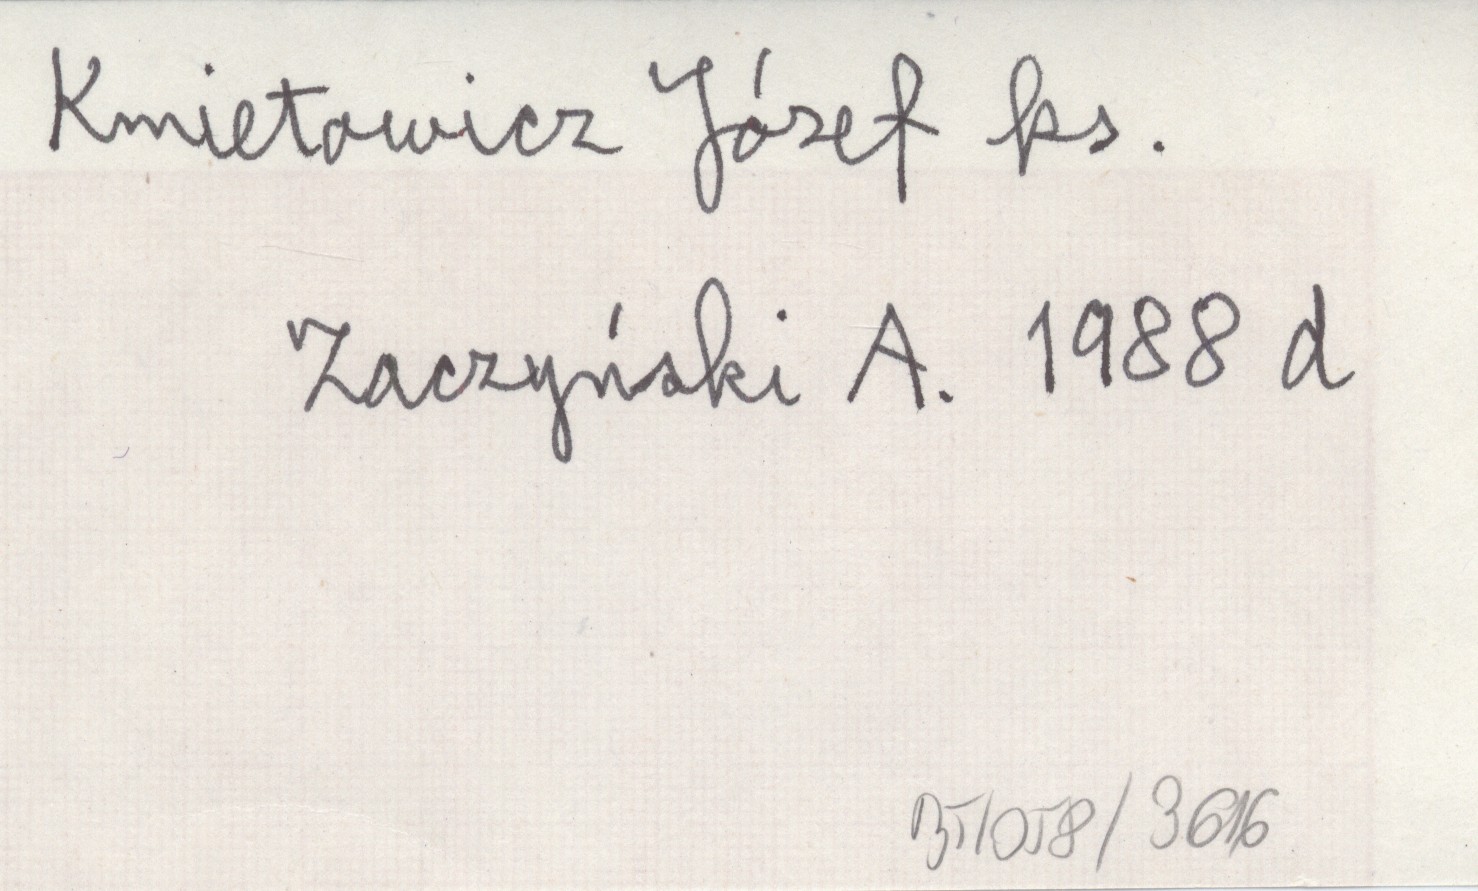 Kmietowicz Józef ks.
Zaczyński A. 1988 d
/ 3616